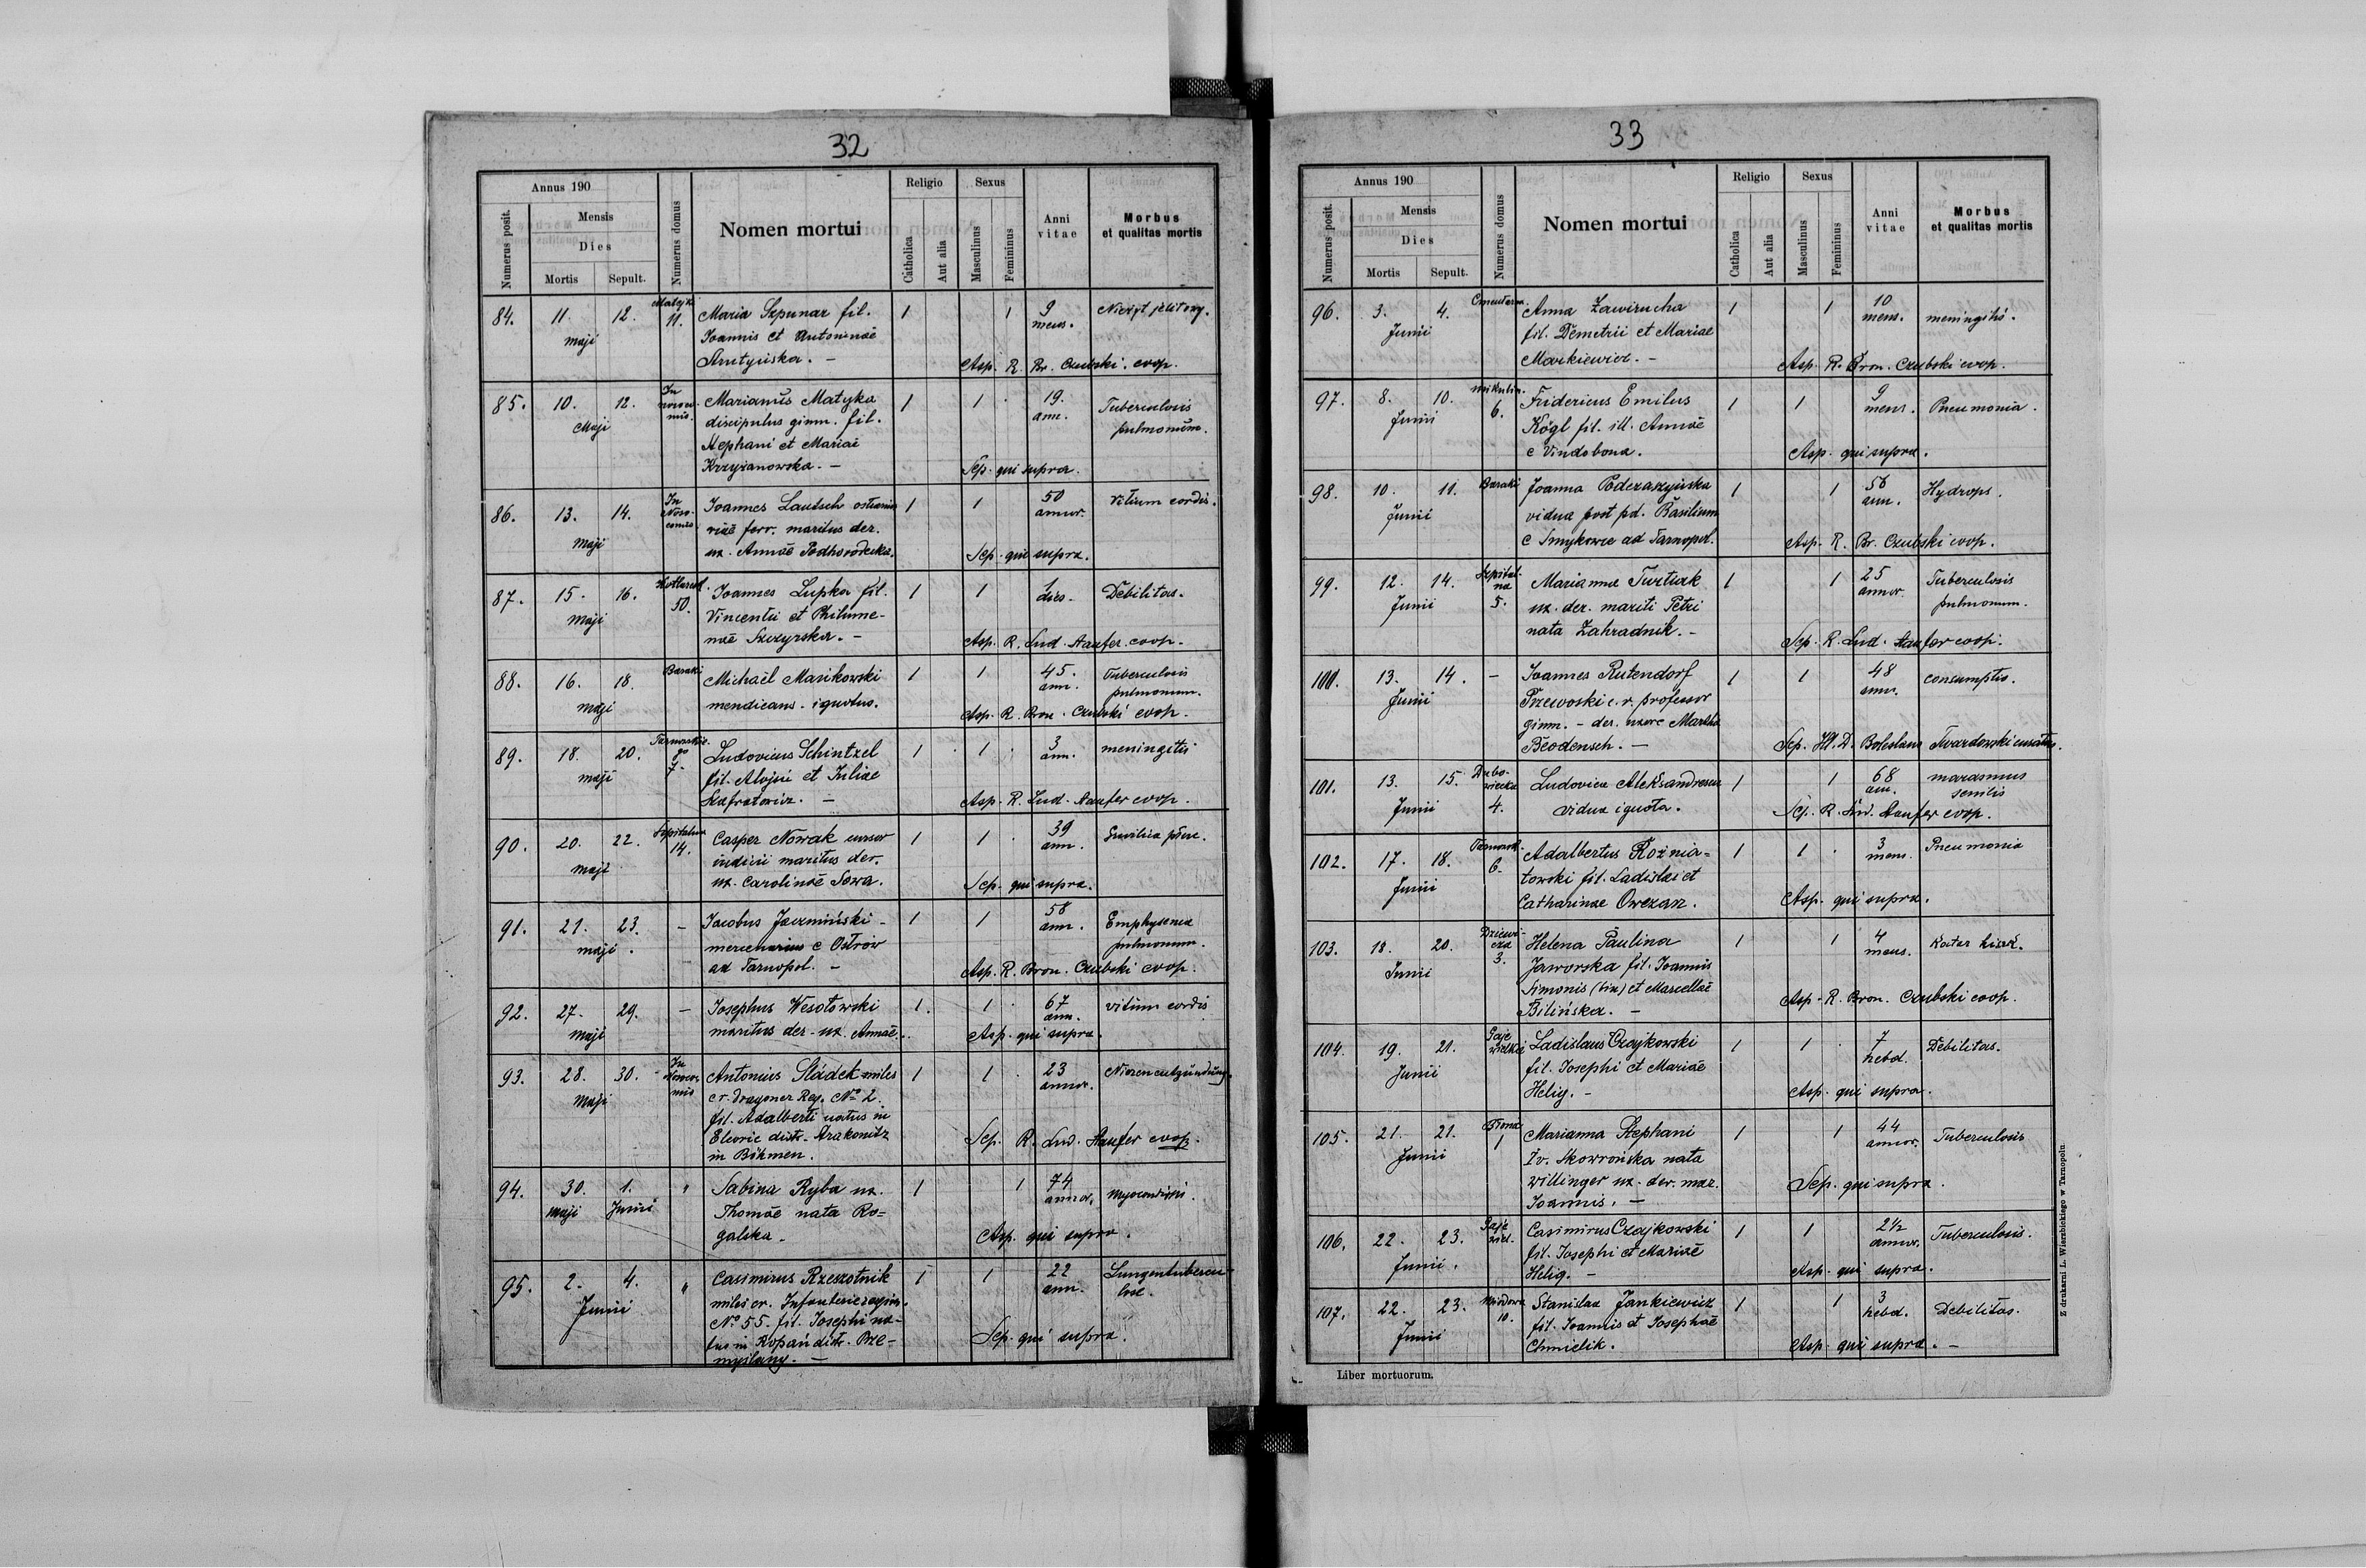 32
Annus 190
Religio
Sexus
Numerus posit.
Mensis
Dies
Mortis
Sepult.
Numerus domus
Nomen mortui
Catholica
Aut alia
Masculinus
Femininus
Anni vitae
Morbus et qualitas mortis
84. 11 12. 11. Maria Szpunar fil. 1 1 9
maji Joannis et Antoninae mens.
Asp. R. Br. Czubski. coop.
85. 10. 12. In Marianus Matyka 1 1 19. Tuberculosis
Maji discipulus gimn. fil. ann. pulmonum.
Stephani et Mariae
Krzyżanowska. - Sep. qui supra.
86. 13. 14. In Joannes Lautsch 1 1 50 Vitium cordis.
maji viae ferr. maritus der. annor.
ux. Annae Podhorodecka. Sep. qui supra.
87. 15. 16. 50. Joannes Lupka fil. 1 1 1 Debilitas.
maji Vincentii et Philome- dies.
nae Szczyrska. - Asp. R. Lud. Staufer coop.
88. 16. 18. Baraki Michaël Masikowski 1 1 45. Tuberculosis
maji mendicans. ignotus. ann. pulmonum.
Asp. R. Bron. Czubski coop.
89. 18. 20. 7. Ludovicus Schintzel 1 1 3 meningitis
maji fil. Alojsii et Juliae ann.
Asp. R. Lud. Staufer coop.
90. 20. 22. Szpitalna 14. Casper Nowak cursor 1 1 39
maji iudicii maritus der. ann.
ux. Carolinae Sowa. Sep. qui supra.
91. 21. 23. - Jacobus Jaczmiński - 1 1 58 Emphysema
maji. mercenarius e Ostrów ann. pulmonum.
ad Tarnopol. - Asp. R. Bron. Czubski coop.
92. 27. 29. - Josephus Wesołowski 1. 1 67 vitium cordis
maji maritus der. ux. Annae. ann.
Asp. qui supra.
93. 28. 30. In Antonius Sládek miles 1 1 23 Nierenentzündung.
maji cr. Dragoner Reg. № 2. annor.
fil. Adalberti natus in
distr. Strakonitz Sep. R. Lud. Staufer coop.
in Böhmen.
94. 30. 1. " Sabina Ryba ux. 1 1 74
maji Junii Thomae nata Ro- annor.
galska. Asp. qui supra.
95. 2. 4. " Casimirus Rzeszotnik 1 1 22 Lungentubercu-
Junii miles cr. Infanterieregim. ann. lose.
№ 55. fil. Josephi na-
tus in Kopań distr. Prze- Sep. qui supra.
myślany. -
33
Annus 190
Religio
Sexus
Numerus posit.
Mensis
Dies
Mortis
Sepult.
Numerus domus
Nomen mortui
Catholica
Aut alia
Masculinus
Femininus
Anni vitae
Morbus et qualitas mortis
96. 3. 4. Anna Zawirucha 1 1 10 meningitis.
Junii fil. Demetrii et Mariae mens.
Markiewicz. - Asp. R. Bron. Czubski coop.
97. 8. 10. Mikulin. 6. Fridericus Emilus 1 1 9 Pneumonia.
Junii Kögl fil. ill. Annae mens.
e Vindobona. Asp. qui supra.
98. 10. 11. Baraki Joanna Podczaszyńska 1 1 56 Hydrops.
Junii vidua post pd. Basilium ann.
e Smykowce ad Tarnopol. Asp. R. Br. Czubski coop.
99. 12. 14. Szpital- Marianna Turtiak 1 1 25 Tuberculosis
Junii na 5. ux. der. mariti Petri annor. pulmonum.
nata Zahradnik. - Sep. R. Lud. Staufer coop.
100. 13. 14. - Joannes Rutendorf 1 1 48 consumptio.
Junii Przewoski c. r. professor ann.
gimn. - der. uxore Martha
Sep. Ill. D. Boleslaus Twardowski
101. 13. 15. 4. Ludovica Aleksandrowicz 1 1 68 marasmus
Junii vidua ignota. an. senilis
Sep. R. Lud. Staufer coop.
102. 17. 18. 6. Adalbertus Rożnia- 1 1 3 Pneumonia
Junii towski fil. Ladislai et mens.
Catharinae Owczar. Asp. qui supra.
103. 18. 20. 3. Helena Paulina 1 1 4
Junii Jaworska fil. Joannis mens.
Simonis (bin) et Marcellae Asp. R. Bron. Czubski coop.
Bilińska. -
104. 19. 21. Gaje Ladislaus Czajkowski 1 1 7 Debilitas.
Junii fil. Josephi et Mariae hebd.
Helig. - Asp. qui supra.
105. 21. 21. 1 Marianna Stephani 1 1 44 Tuberculosis
Junii Iv. Skowrońska nata annor.
Willinger ux. der. mar. Sep. qui supra.
Joannis. -
106. 22. 23. Gaje Casimirus Czajkowski 1 1 2½ Tuberculosis.
Junii. fil. Josephi et Mariae annor.
Helig. - Asp. qui supra.
107. 22. 23. Miodowa 10. Stanislaa Jankiewicz 1 1 3 Debilitas.
Junii fil. Joannis et Josephae hebd.
Chmielik. Asp. qui supra. -
Liber mortuorum.
Z drukarni L. Wierzbickiego w Tarnopolu